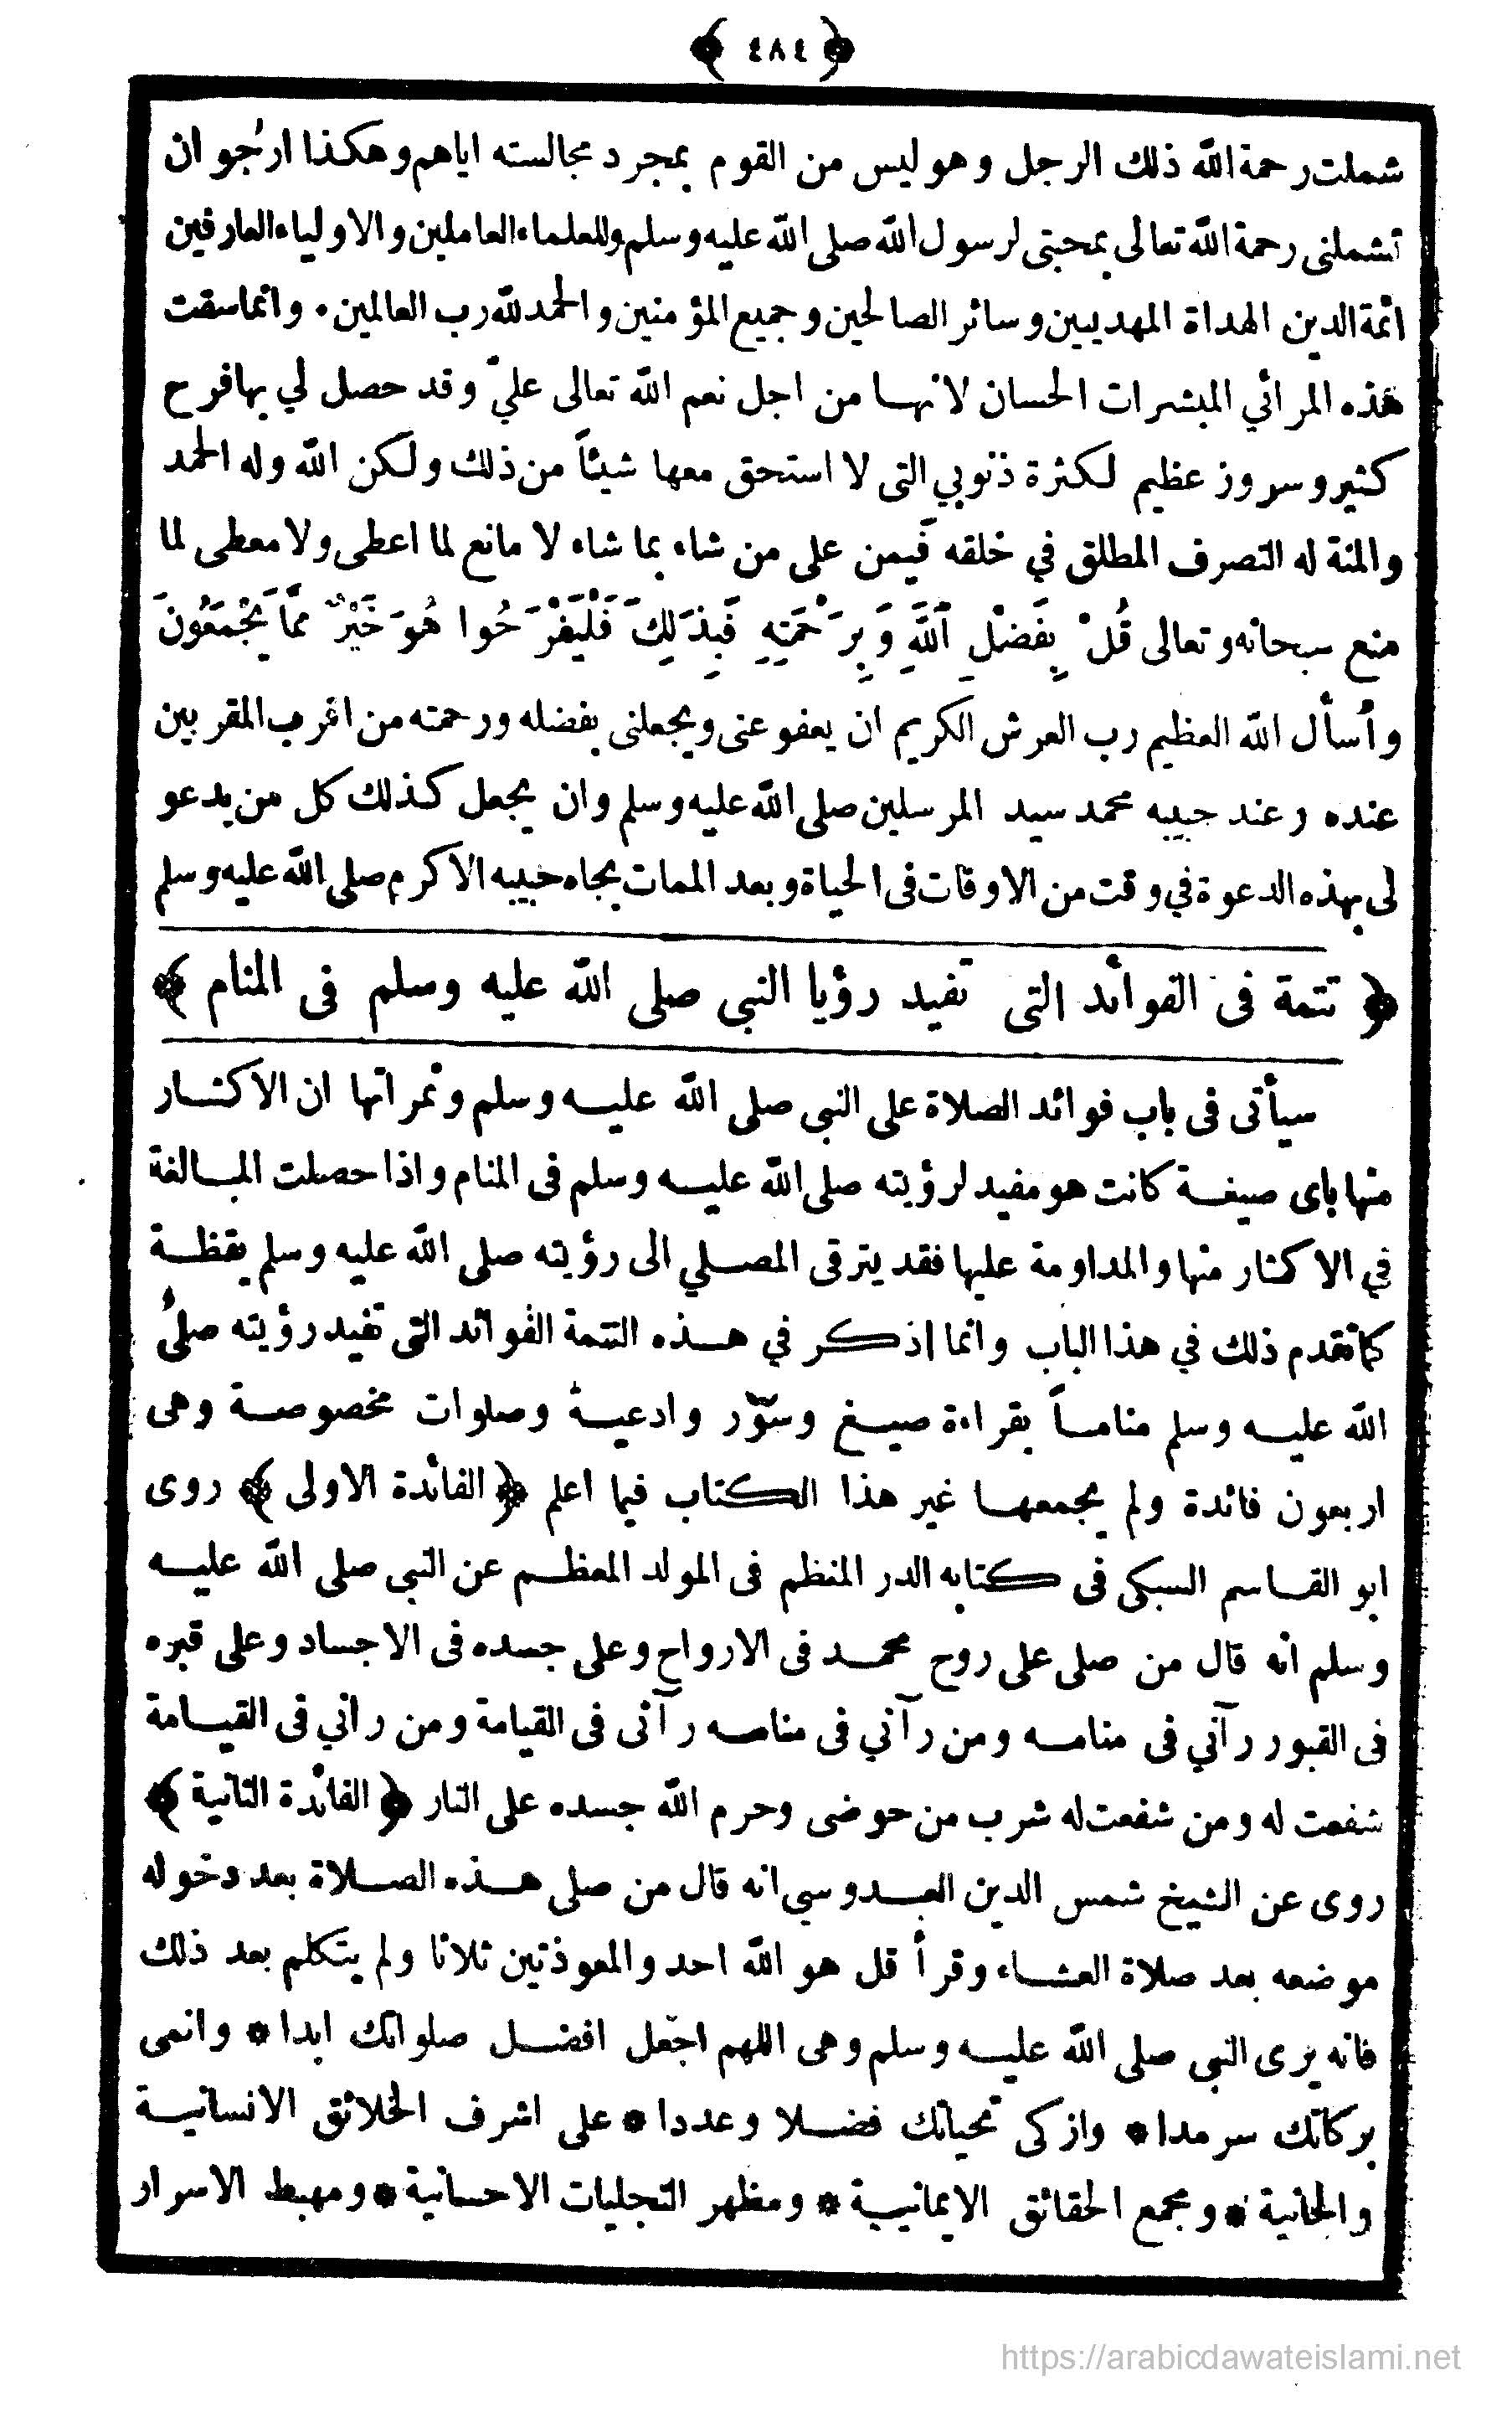 ﴿ ٤٨٤ ﴾
شملت رحمة الله ذلك الرجل وهو ليس من القوم بمجرد مجالسته اياهم وهكذا ارجو ان
تشملنى رحمة الله تعالى بمحبتى لرسول الله صلى الله عليه وسلم وللعلماء العاملين والاولياء العارفين
ائمة الدين الهداة المهديين وسائر الصالحين وجميع المؤمنين والحمد لله رب العالمين ٠ وانما سقت
هذه المرائي المبشرات الحسان لانها من اجل نعم الله تعالى عليّ وقد حصل لي بها فرح
كثير وسرور عظيم لكثرة ذنوبي التى لا استحق معها شيئاً من ذلك ولكن الله وله الحمد
والمنة له التصرف المطلق في خلقه فيمن على من شاء بما شاء لا مانع لما اعطى ولا معطى لما
منع سبحانه وتعالى قُلْ بِفَضْلِ ٱللَّهِ وَبِرَحْمَتِهِ فَبِذَلِكَ فَلْيَفْرَحُوا هُوَ خَيْرٌ مِمَّا يَجْمَعُونَ
وأسأل الله العظيم رب العرش الكريم ان يعفو عنى ويجعلنى بفضله ورحمته من اقرب المقربين
عنده وعند حبيبه محمد سيد المرسلين صلى الله عليه وسلم وان يجعل كذلك كل من يدعو
لى بهذه الدعوة في وقت من الاوقات فى الحياة وبعد الممات بجاه حبيبه الاكرم صلى الله عليه وسلم
﴿ تتمة فى الفوائد التى تفيد رؤيا النبي صلى الله عليه وسلم فى المنام ﴾
سيأتى فى باب فوائد الصلاة على النبى صلى الله عليه وسلم وثمراتها ان الاكثار
منها باى صيغة كانت هو مفيد لرؤيته صلى الله عليه وسلم فى المنام واذا حصلت المبالغة
في الاكثار منها والمداومة عليها فقد يترقى المصلي الى رؤيته صلى الله عليه وسلم يقظة
كما تقدم ذلك في هذا الباب وانما اذكر في هذه التتمة الفوائد التى تفيد رؤيته صلى
الله عليه وسلم مناماً بقراءة صيغ وسور وادعية وصلوات مخصوصة وهى
اربعون فائدة ولم يجمعها غير هذا الكتاب فيما اعلم ﴿ الفائدة الاولى ﴾ روى
ابو القاسم السبكى فى كتابه الدر المنظم فى المولد المعظم عن النبى صلى الله عليه
وسلم انه قال من صلى على روح محمد فى الارواح وعلى جسده فى الاجساد وعلى قبره
فى القبور رآني فى منامه ومن رآني فى منامه رآنى فى القيامة ومن رانى فى القيامة
شفعت له ومن شفعت له شرب من حوضى وحرم الله جسده على النار ﴿ الفائدة الثانية ﴾
روى عن الشيخ شمس الدين العبدوسي انه قال من صلى هذه الصلاة بعد دخوله
موضعه بعد صلاة العشاء وقرأ قل هو الله احد والمعوذتين ثلاثا ولم يتكلم بعد ذلك
فانه يرى النبى صلى الله عليه وسلم وهى اللهم اجعل افضل صلواتك ابدا * وانمى
بركاتك سرمدا * وازكى تحياتك فضلا وعددا * على اشرف الخلائق الانسانية
والجانية * ومجمع الحقائق الايمانية * ومظهر التجليات الاحسانية * ومهبط الاسرار
https://arabicdawateislami.net